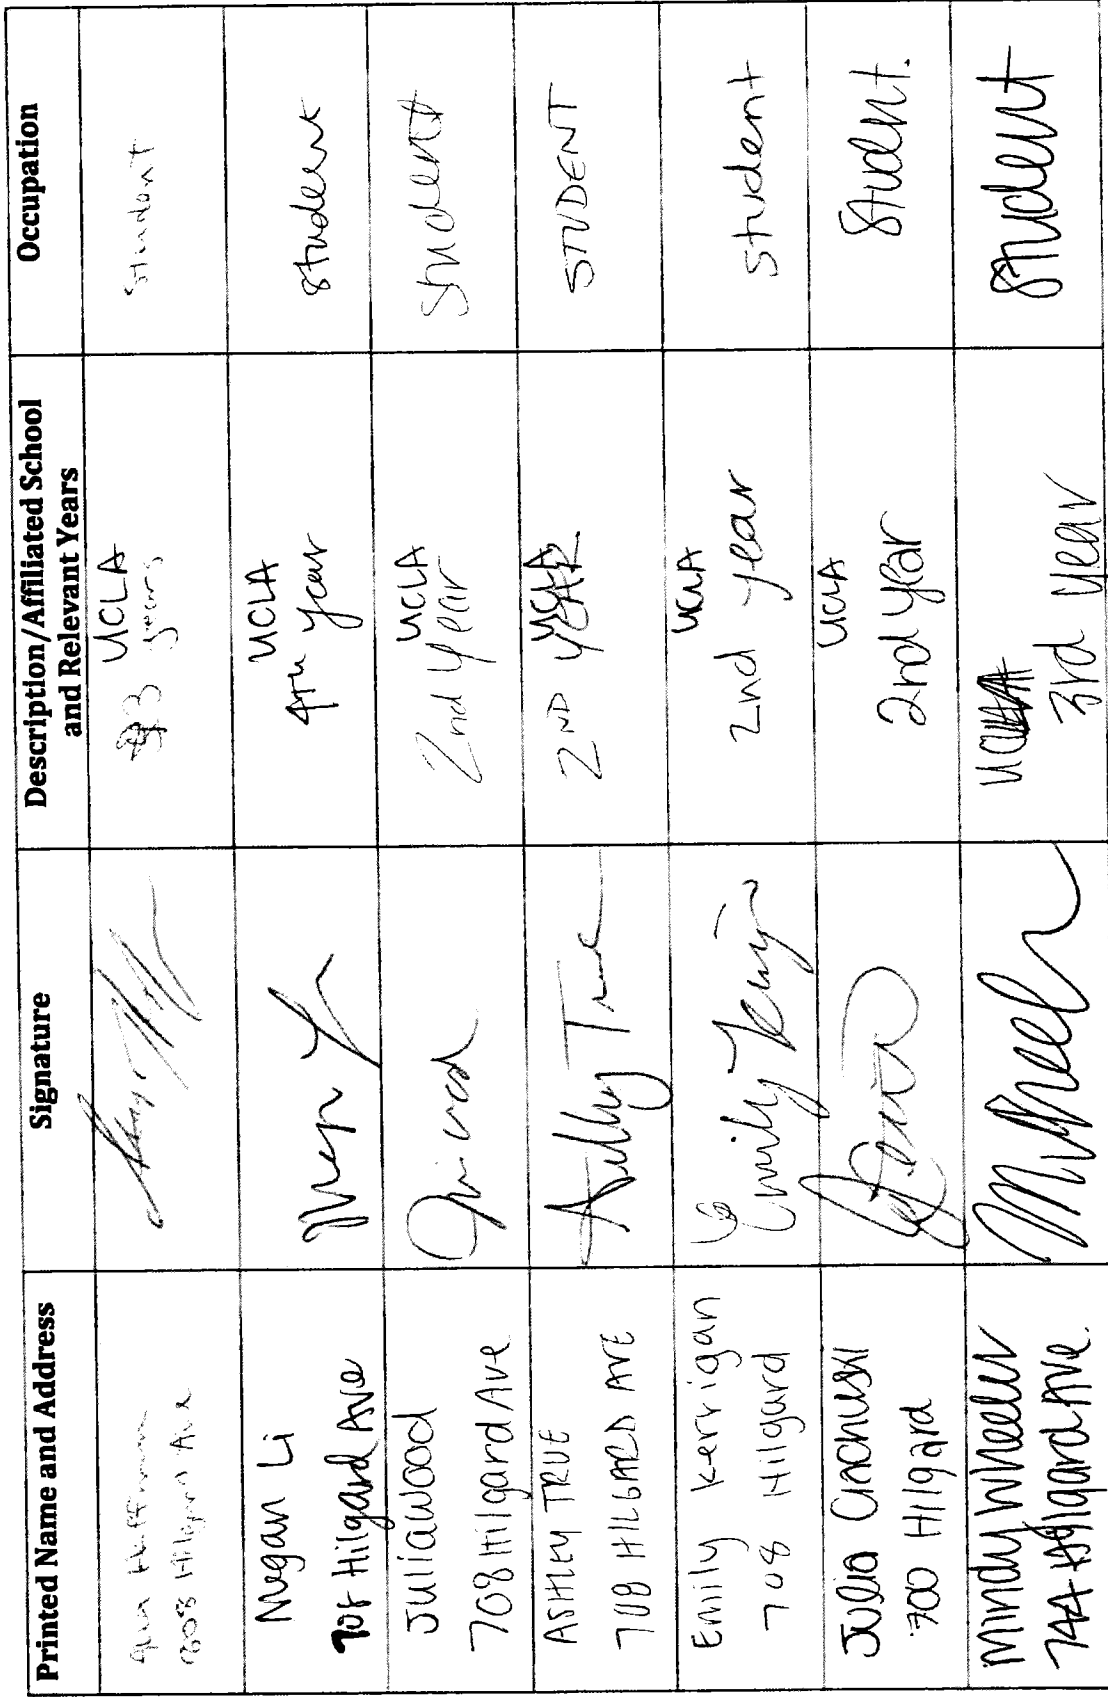 Printed Name and Address
Signature
Description/Affiliated School
and Relevant Years
Occupation
Huffman
808 Hilgard Ave
UCLA
3 years
Student
Megan Li
708 Hilgard Ave
UCLA
4th year
Student
Julia Wood
708 Hilgard Ave
UCLA
2nd Year
Student
ASHLEY TRUE
708 HILGARD AVE
Ashley True
UCLA
2ND YEAR
STUDENT
Emily Kerrigan
708 Hilgard
Emily Kerrigan
UCLA
2nd year
Student
Julia
700 Hilgard
UCLA
2nd Year
Student.
Mindy Wheeler
744 Hilgard Ave.
M Wheeler
UCLA
3rd year
Student